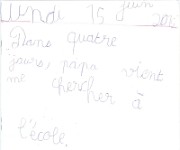 Lundi 15 juin 2015
Dans quatre
jours, papa vient
me chercher à
l'école.